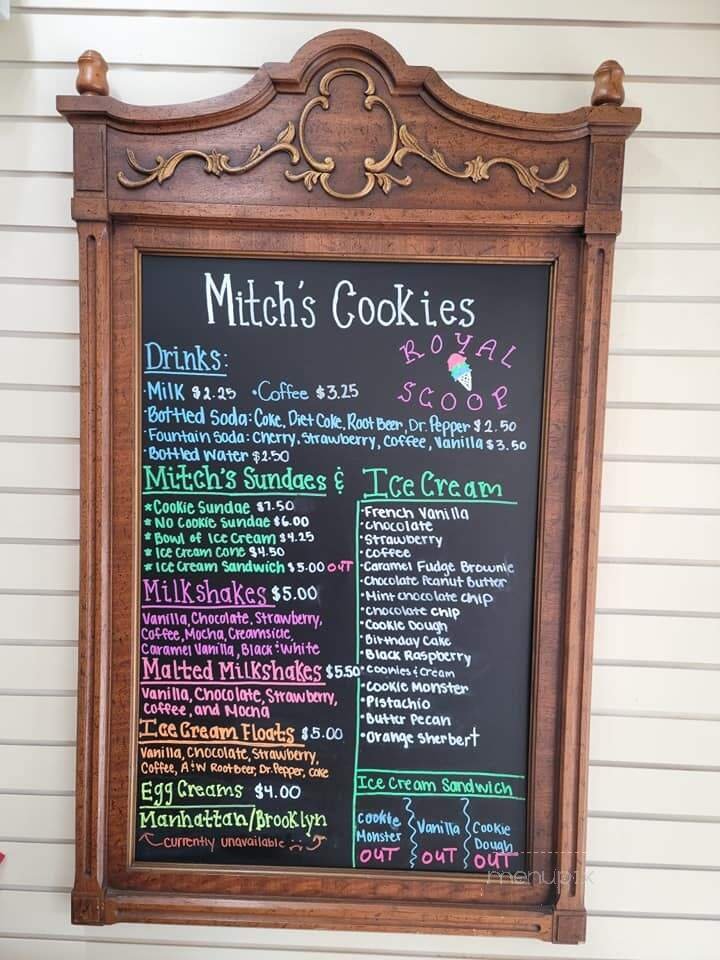 Mitch's Cookies
ROYAL
SCOOP
Drinks:
·Milk $2.25 ·Coffee $3.25
·Bottled Soda: Coke, Diet Coke, Root Beer, Dr. Pepper $2.50
·Fountain Soda: Cherry, Strawberry, Coffee, Vanilla $3.50
·Bottled Water $2.50
Mitch's Sundaes &
* Cookie Sundae $7.50
* No Cookie Sundae $6.00
* Bowl of Ice Cream $4.25
* Ice Cream Cone $4.50
* Ice Cream Sandwich $5.00 OUT
Milkshakes $5.00
Vanilla, Chocolate, Strawberry,
Coffee, Mocha, Creamsicle,
Caramel Vanilla, Black & White
Malted Milkshakes $5.50
Vanilla, Chocolate, Strawberry,
Coffee, and Mocha
Ice Cream Floats $5.00
Vanilla, Chocolate, Strawberry,
Coffee, A&W Root Beer, Dr. Pepper, Coke
Egg Creams $4.00
Manhattan/Brooklyn
Currently unavailable
Ice Cream
·French Vanilla
·Chocolate
·Strawberry
·Coffee
·Caramel Fudge Brownie
·Chocolate Peanut Butter
·Mint chocolate chip
·Chocolate chip
·Cookie Dough
·Birthday Cake
·Black Raspberry
·Cookies & Cream
·Cookie Monster
·Pistachio
·Butter Pecan
·Orange Sherbert
Ice Cream Sandwich
Cookie Monster OUT
Vanilla OUT
Cookie Dough OUT
menupix